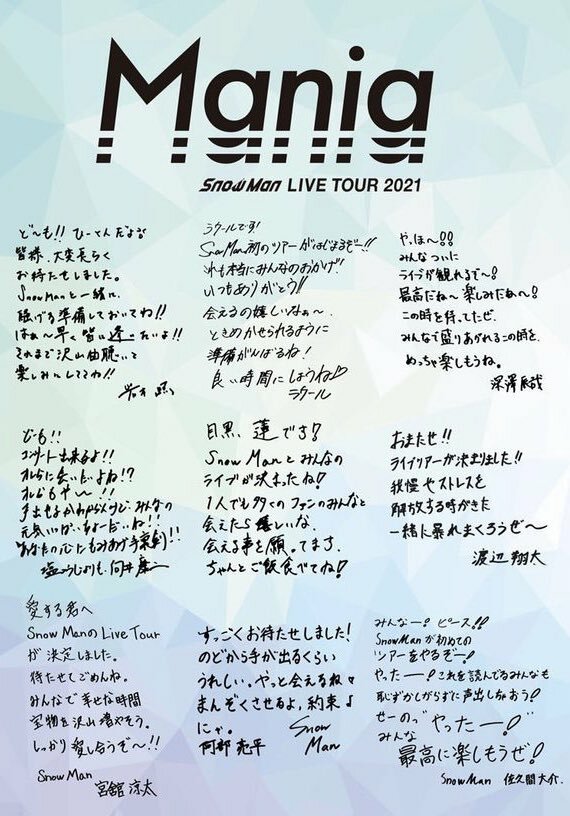 Mania
Snow Man LIVE TOUR 2021
ど〜も!! ひーくんだよ
皆様、大変長らく
お待たせしました。
SnowManと一緒に、
騒げる準備しておいてね!!
はぁ〜早く皆に逢いたいよ!!
それまで沢山曲聴いて
楽しみにしててね!!
岩本 照
ラウールです!
SnowMan初のツアーがはじまるぞー!!
これも本当にみんなのおかげ!
いつもありがとう!!
会えるの嬉しいなぁ〜、
ときめかせられるように
準備がんばるね!
良い時間にしようね♡
ラウール
やっほ〜!!
みんなついに
ライブが観れるで〜!
最高だね〜楽しみだぁ〜!
この時を待ってたぜ、
みんなで盛りあがれるこの時を、
めっちゃ楽しもうね。
深澤辰哉
ども!!
コンサート出来るよ!!
オレらに会いたいよね!?
オレどもや〜!!
みんなの
元気いっぱいちょーだいね!
あなたの心にもみあげ手裏剣!!
塩こうじよりも、向井康二
目黒 蓮です!
Snow Manとみんなの
ライブが決まったね!
1人でも多くのファンのみんなと
会えたら嬉しいな、
会える事を願ってます。
ちゃんとご飯食べてね!
おまたせ!!
ライブツアーが決まりました!!
我慢やストレスを
解放する時がきた
一緒に暴れまくろうぜ〜
渡辺翔太
愛する君へ
Snow ManのLive Tour
が決定しました。
待たせてごめんね。
みんなで幸せな時間
宝物を沢山増やそう。
しっかり愛し合うぞ〜!!
Snow Man
宮舘涼太
すっごくお待たせしました!
のどから手が出るくらい
うれしい。やっと会えるね
まんぞくさせるよ、約束♪
にゃ。
阿部亮平
Snow
Man
みんなー! ピース!!
SnowManが初めての
ツアーをやるぞー!
やったー!これを読んでるみんなも
恥ずかしがらずに声出しちゃおう!
せーのっ"やったー!"
みんな
最高に楽しもうぜ!
SnowMan 佐久間大介.